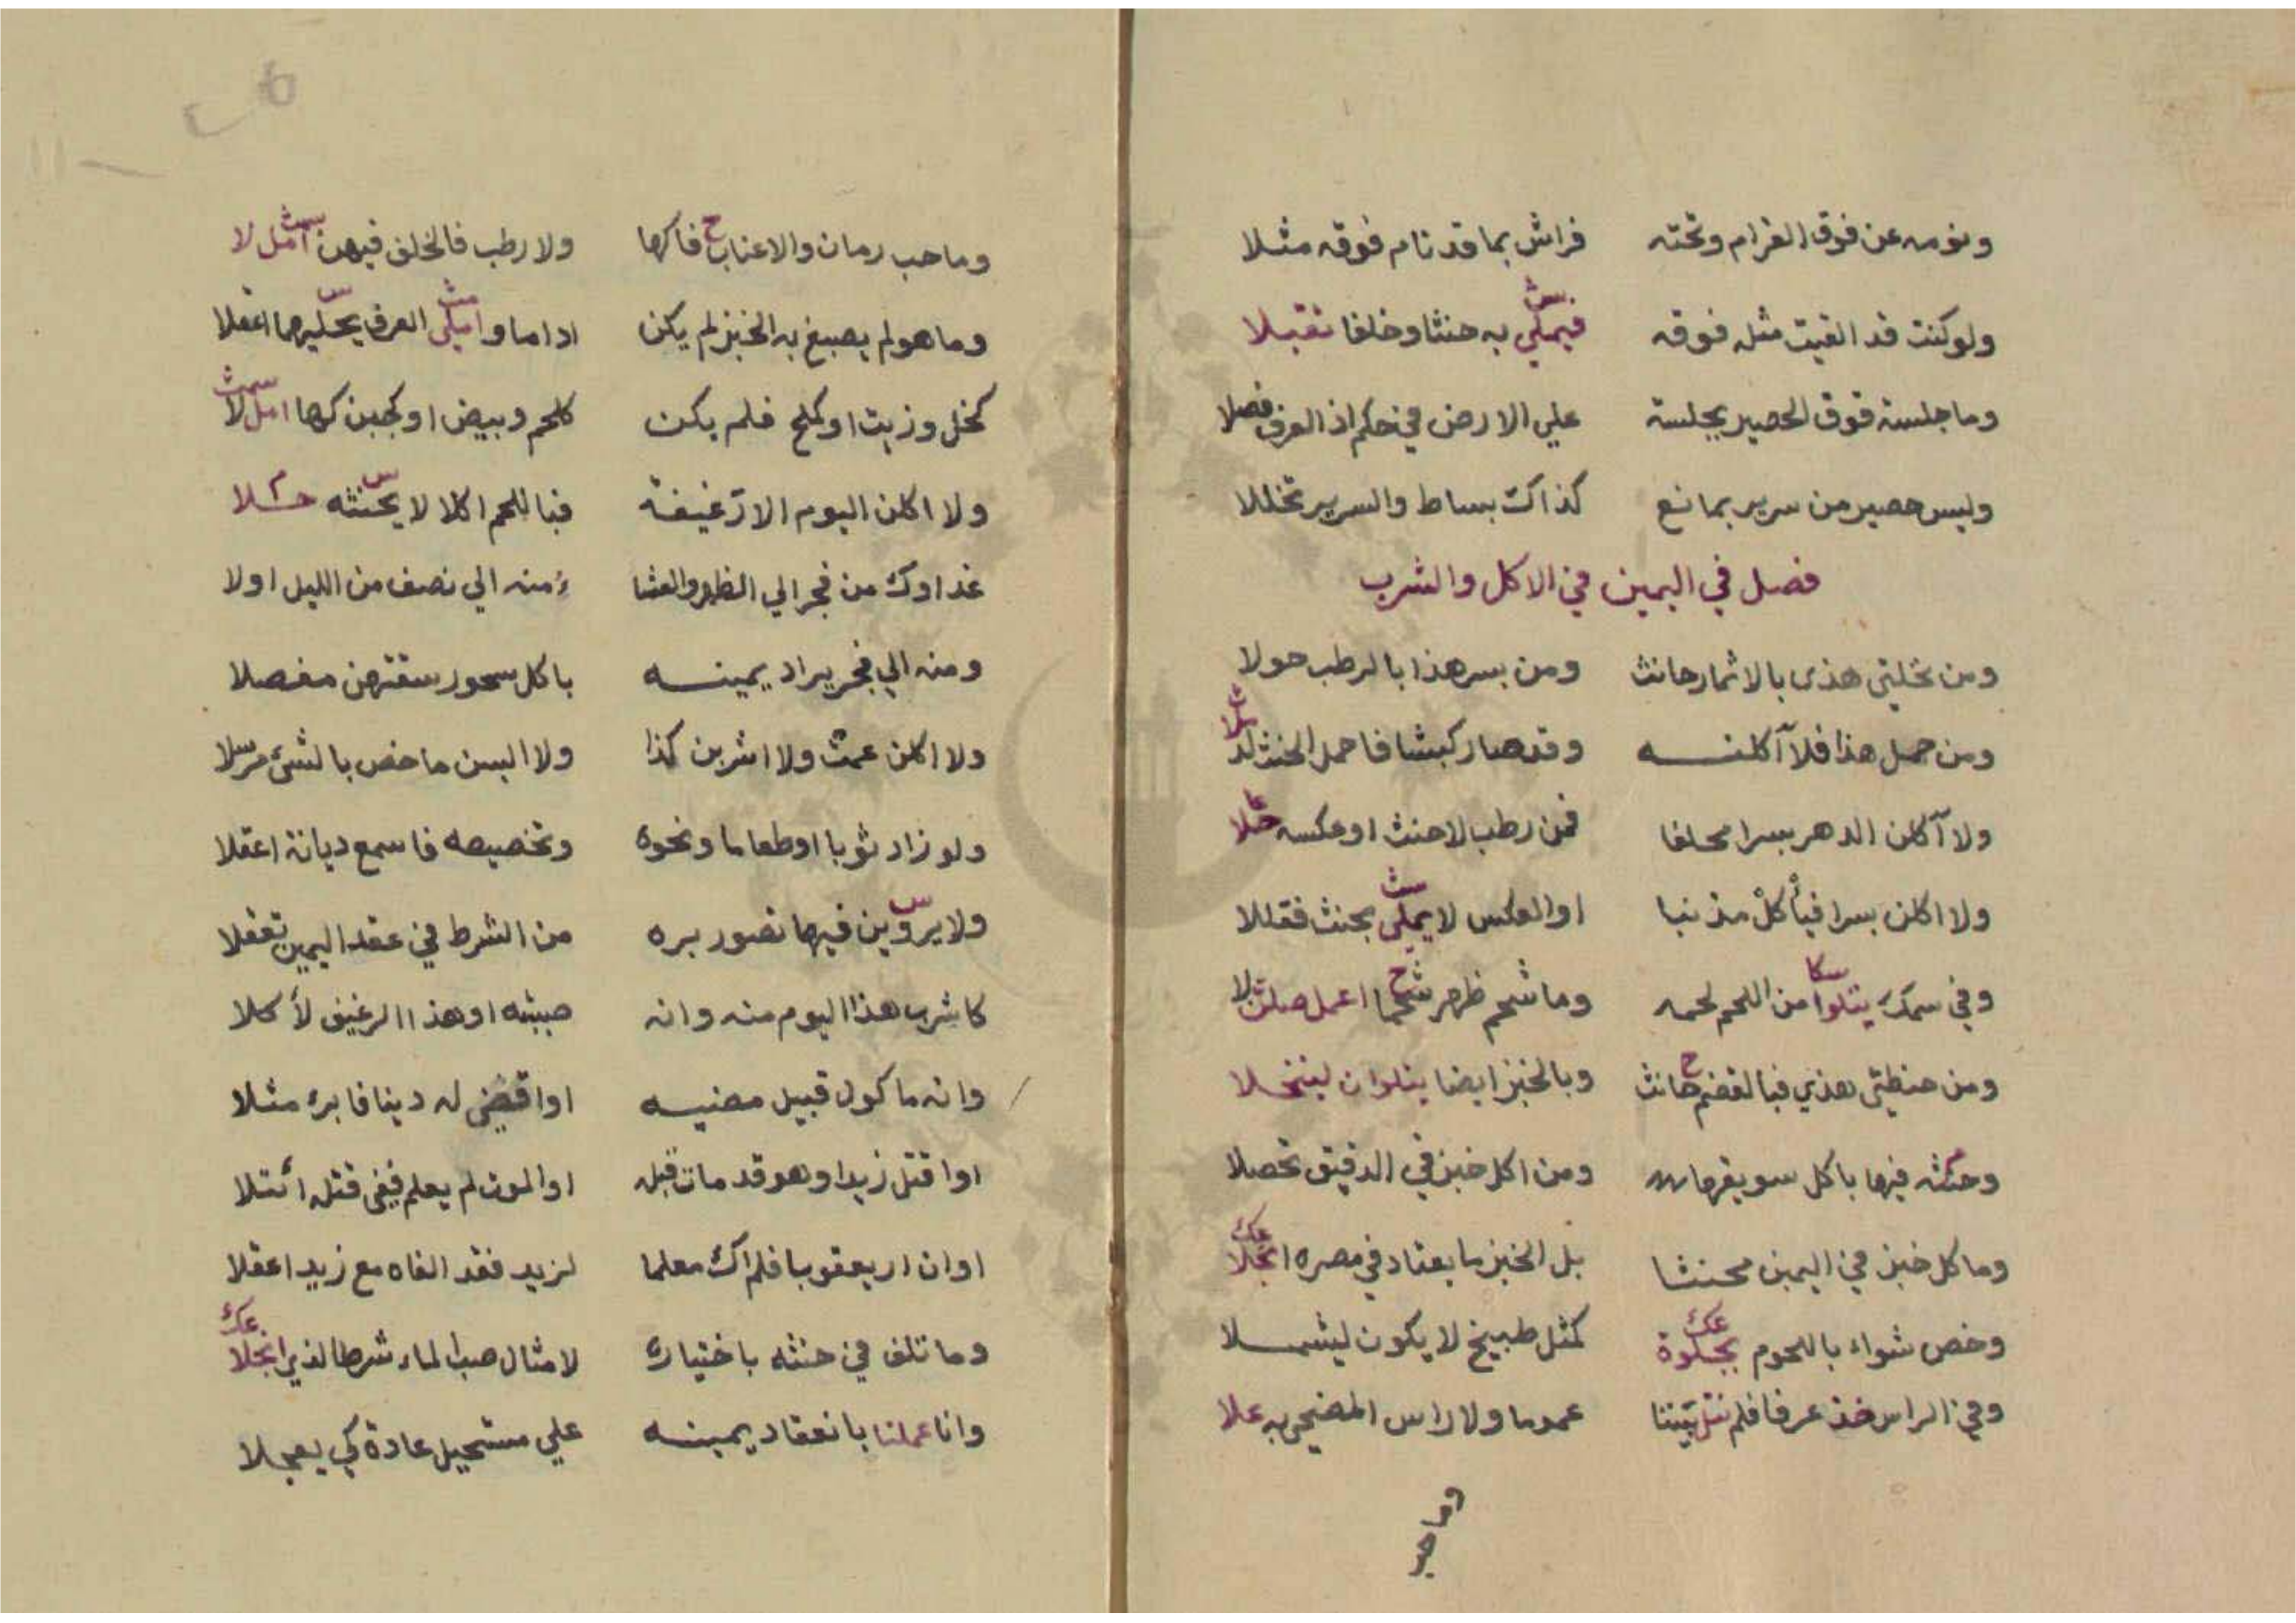 ونومه عن فوق القرام وتحته فراش بما قد نام فوقه مثلا
ولو كنت قد القيت مثله فوقه فيملي به حنثا وخلفا تقبلا
وما جلسة فوق الحصير بجلسة علي الارض في حكم اذ العرف فصلا
وليس حصير من سرير بمانع كذاك بساط والسرير تخللا
فصل في اليمين في الاكل والشرب
ومن نخلتي هذى بالاثمار حانث ومن بسر هذا بالرطب حولا
ومن حمل هذا فلا آكلنه وقد صار كبشا فاحمل الحنث
ولا آكلن الدهر بسرا محلفا فمن رطب لاحنث او عكسه
ولا اكلن بسرا فيأكل مذنبا او العكس لا يملي بحنث فقللا
وفي سمك يتلوا من اللحم لحمه وما شحم ظهر شحما اعمل
ومن حنطتي هذي فبالقضم حانث وبالخبز ايضا يتلوان لينخلا
وحنثه فيها باكل سويقها ومن اكل خبز في الدقيق تحصلا
وما كل خبز في اليمين محنثا بل الخبز ما يعتاد في مصره انجلا
وخص شواء باللحوم بجلوة كمثل طبيخ لا يكون ليشملا
وفي الراس خذ عرفا فلم عموما ولا راس المضحي به علا
وما حب
وما حب رمان والاعناب فاكها ولا رطب فالخلف فيهن امل لا
وما هو لم يصبغ به الخبز لم يكن اداما و العرف اعقلا
كخل وزيت او كملح فلم يكن كلحم وبيض او كجبن كها امل لا
ولا اكلن اليوم الا رغيفة فباللحم اكلا لا يحنثه
غداوك من فجر الي الظهر والعشا ومنه الي نصف من الليل اولا
ومنه الي فجر يراد يمينه باكل سحور مفصلا
ولا اكلن عمت ولا اشربن كذا ولا البسن ما خص بالشئ مرسلا
ولو زاد ثوبا او طعاما ونحوه وتخصيصه فاسمع ديانة اعقلا
ولا يروين فيها تصور بره من الشرط في عقد اليمين تعقلا
كاشرب هذا اليوم منه وانه صببته او هذا الرغيف لأكلا
وانه ماكول قبيل مضيه او اقضي له دينا فابره مثلا
او اقتل زيدا وهو قد مات قبله او الموت لم يعلم ففي قتله
او ان ار يعقوبا فلم اك معلما لزيد فقد الفاه مع زيد اعقلا
وما تلف في حنثه باختياره لامثال صب الماء شرط الذي انجلا
وانا عملنا بانعقاد يمينه علي مستحيل عادة كي يعجلا